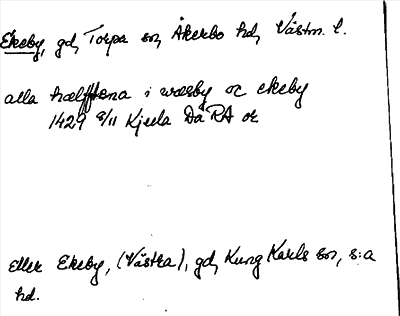 Ekeby, gd, Torpa sn, Åkerbo hd, Västm. l.
alla hælfftena i wæsby oc ekeby
1429 8/11 Kjula Da RA or
eller Ekeby, (Västra), gd, Kung Karls sn, s:a
hd.